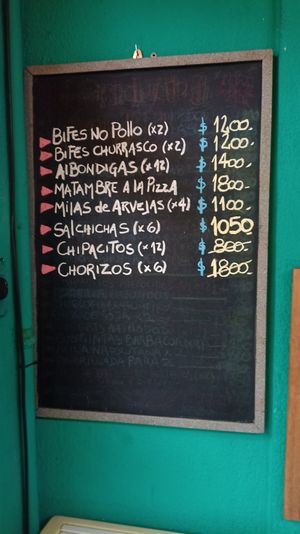 BIFES NO POLLO (x2) $ 1200.-
BIFES CHURRASCO (x2) $ 1200.-
ALBONDIGAS (x12) $ 1400.-
MATAMBRE A LA PIZZA $ 1800.-
MILAS de ARVEJAS (x4) $ 1100.-
SALCHICHAS (x6) $ 1050
CHIPACITOS (x12) $ 800.-
CHORIZOS (x6) $ 1800.-